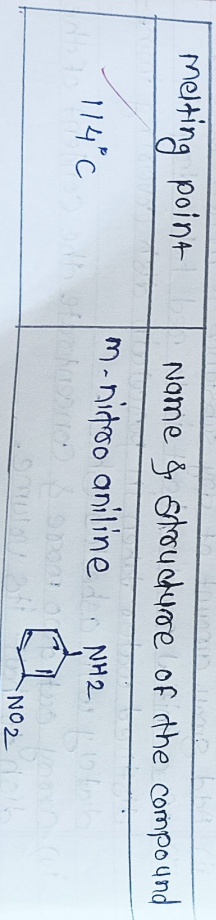 Melting point
Name & structure of the compound
114°C
m-nitro aniline
NH2
NO2